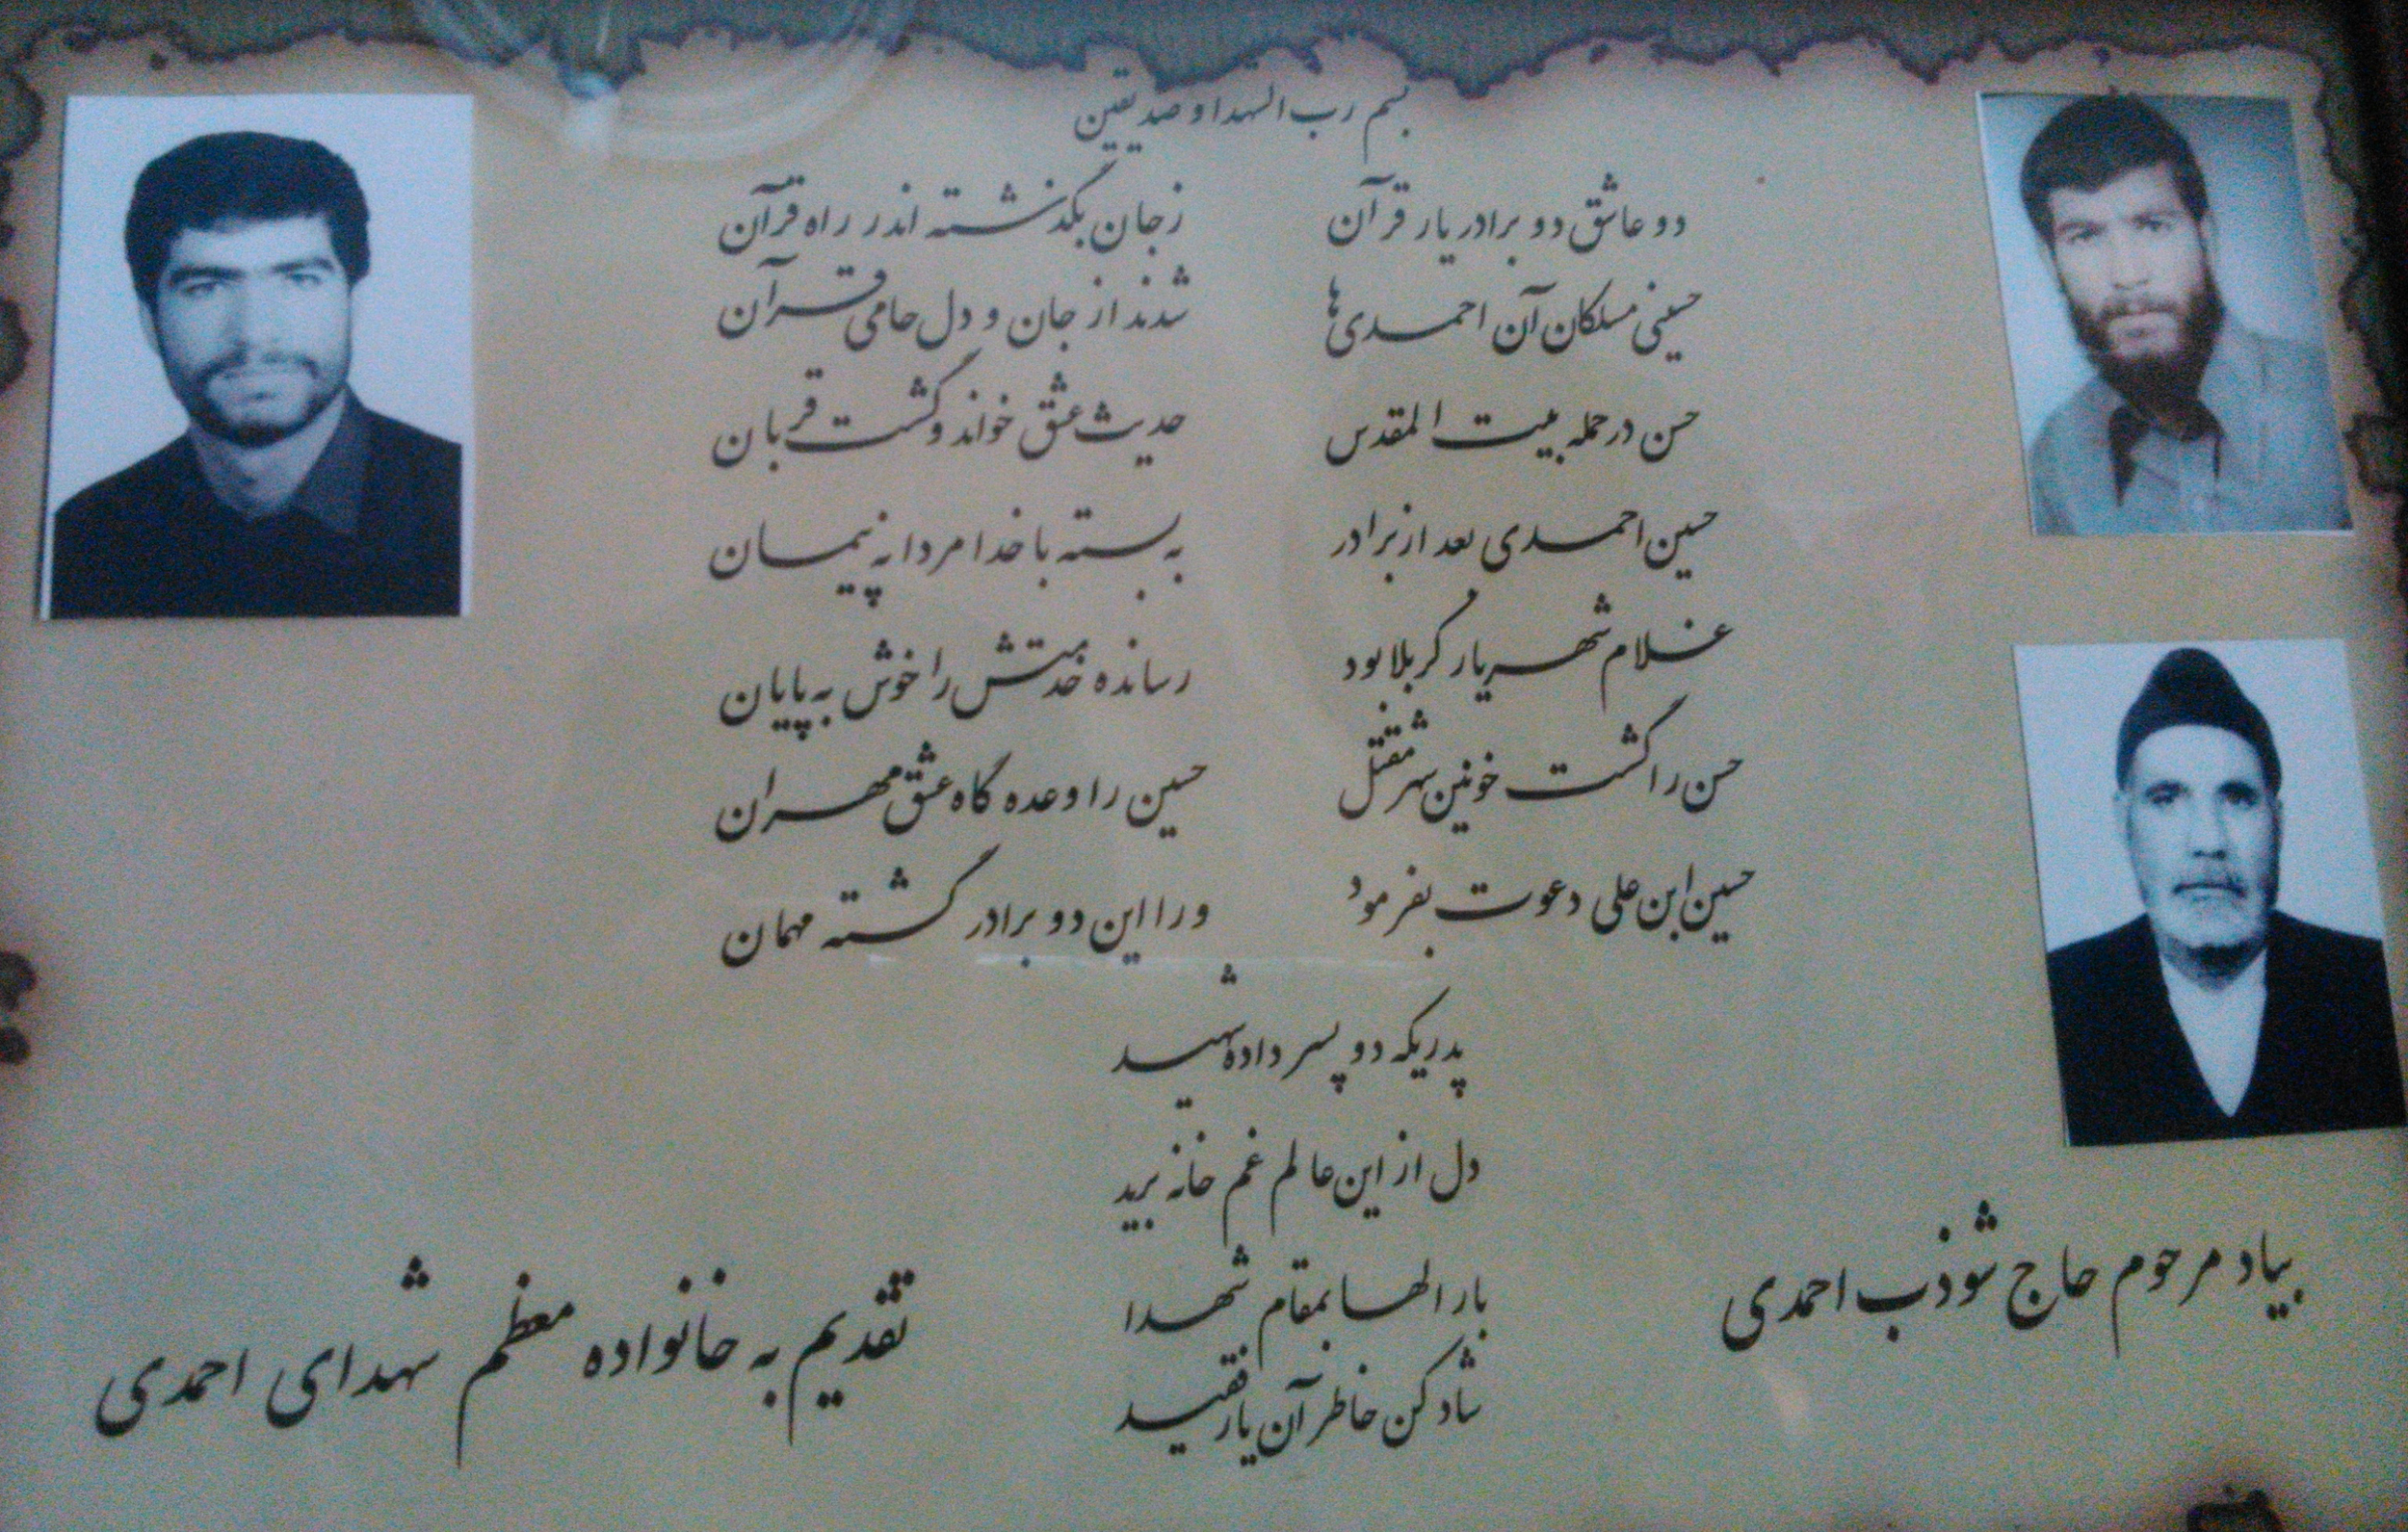 بسم رب الشهدا و صدیقین
دو عاشق دو برادر یار قرآن
زجان بگذشته اندر راه قرآن
حسینی مسلکان آن احمدی‌ها
شدند از جان و دل حامی قرآن
حسن در حمله بیت المقدس
حدیث عشق خواند و گشت قربان
حسین احمدی بعد از برادر
به بسته با خدا مردانه پیمان
غلام شهریار کربلا بود
رسانده خدمتش را خوش به پایان
حسن را گشت خونین شهر مقتل
حسین را وعده گاه عشق مهران
حسین ابن علی دعوت بفرمود
ورا این دو برادر گشته مهمان
پدریکه دو پسر داده شهید
دل از این عالم غم خانه برید
بار الها بمقام شهدا
شاد کن خاطر آن یار فقید
بیاد مرحوم حاج شوذب احمدی
تقدیم به خانواده معظم شهدای احمدی